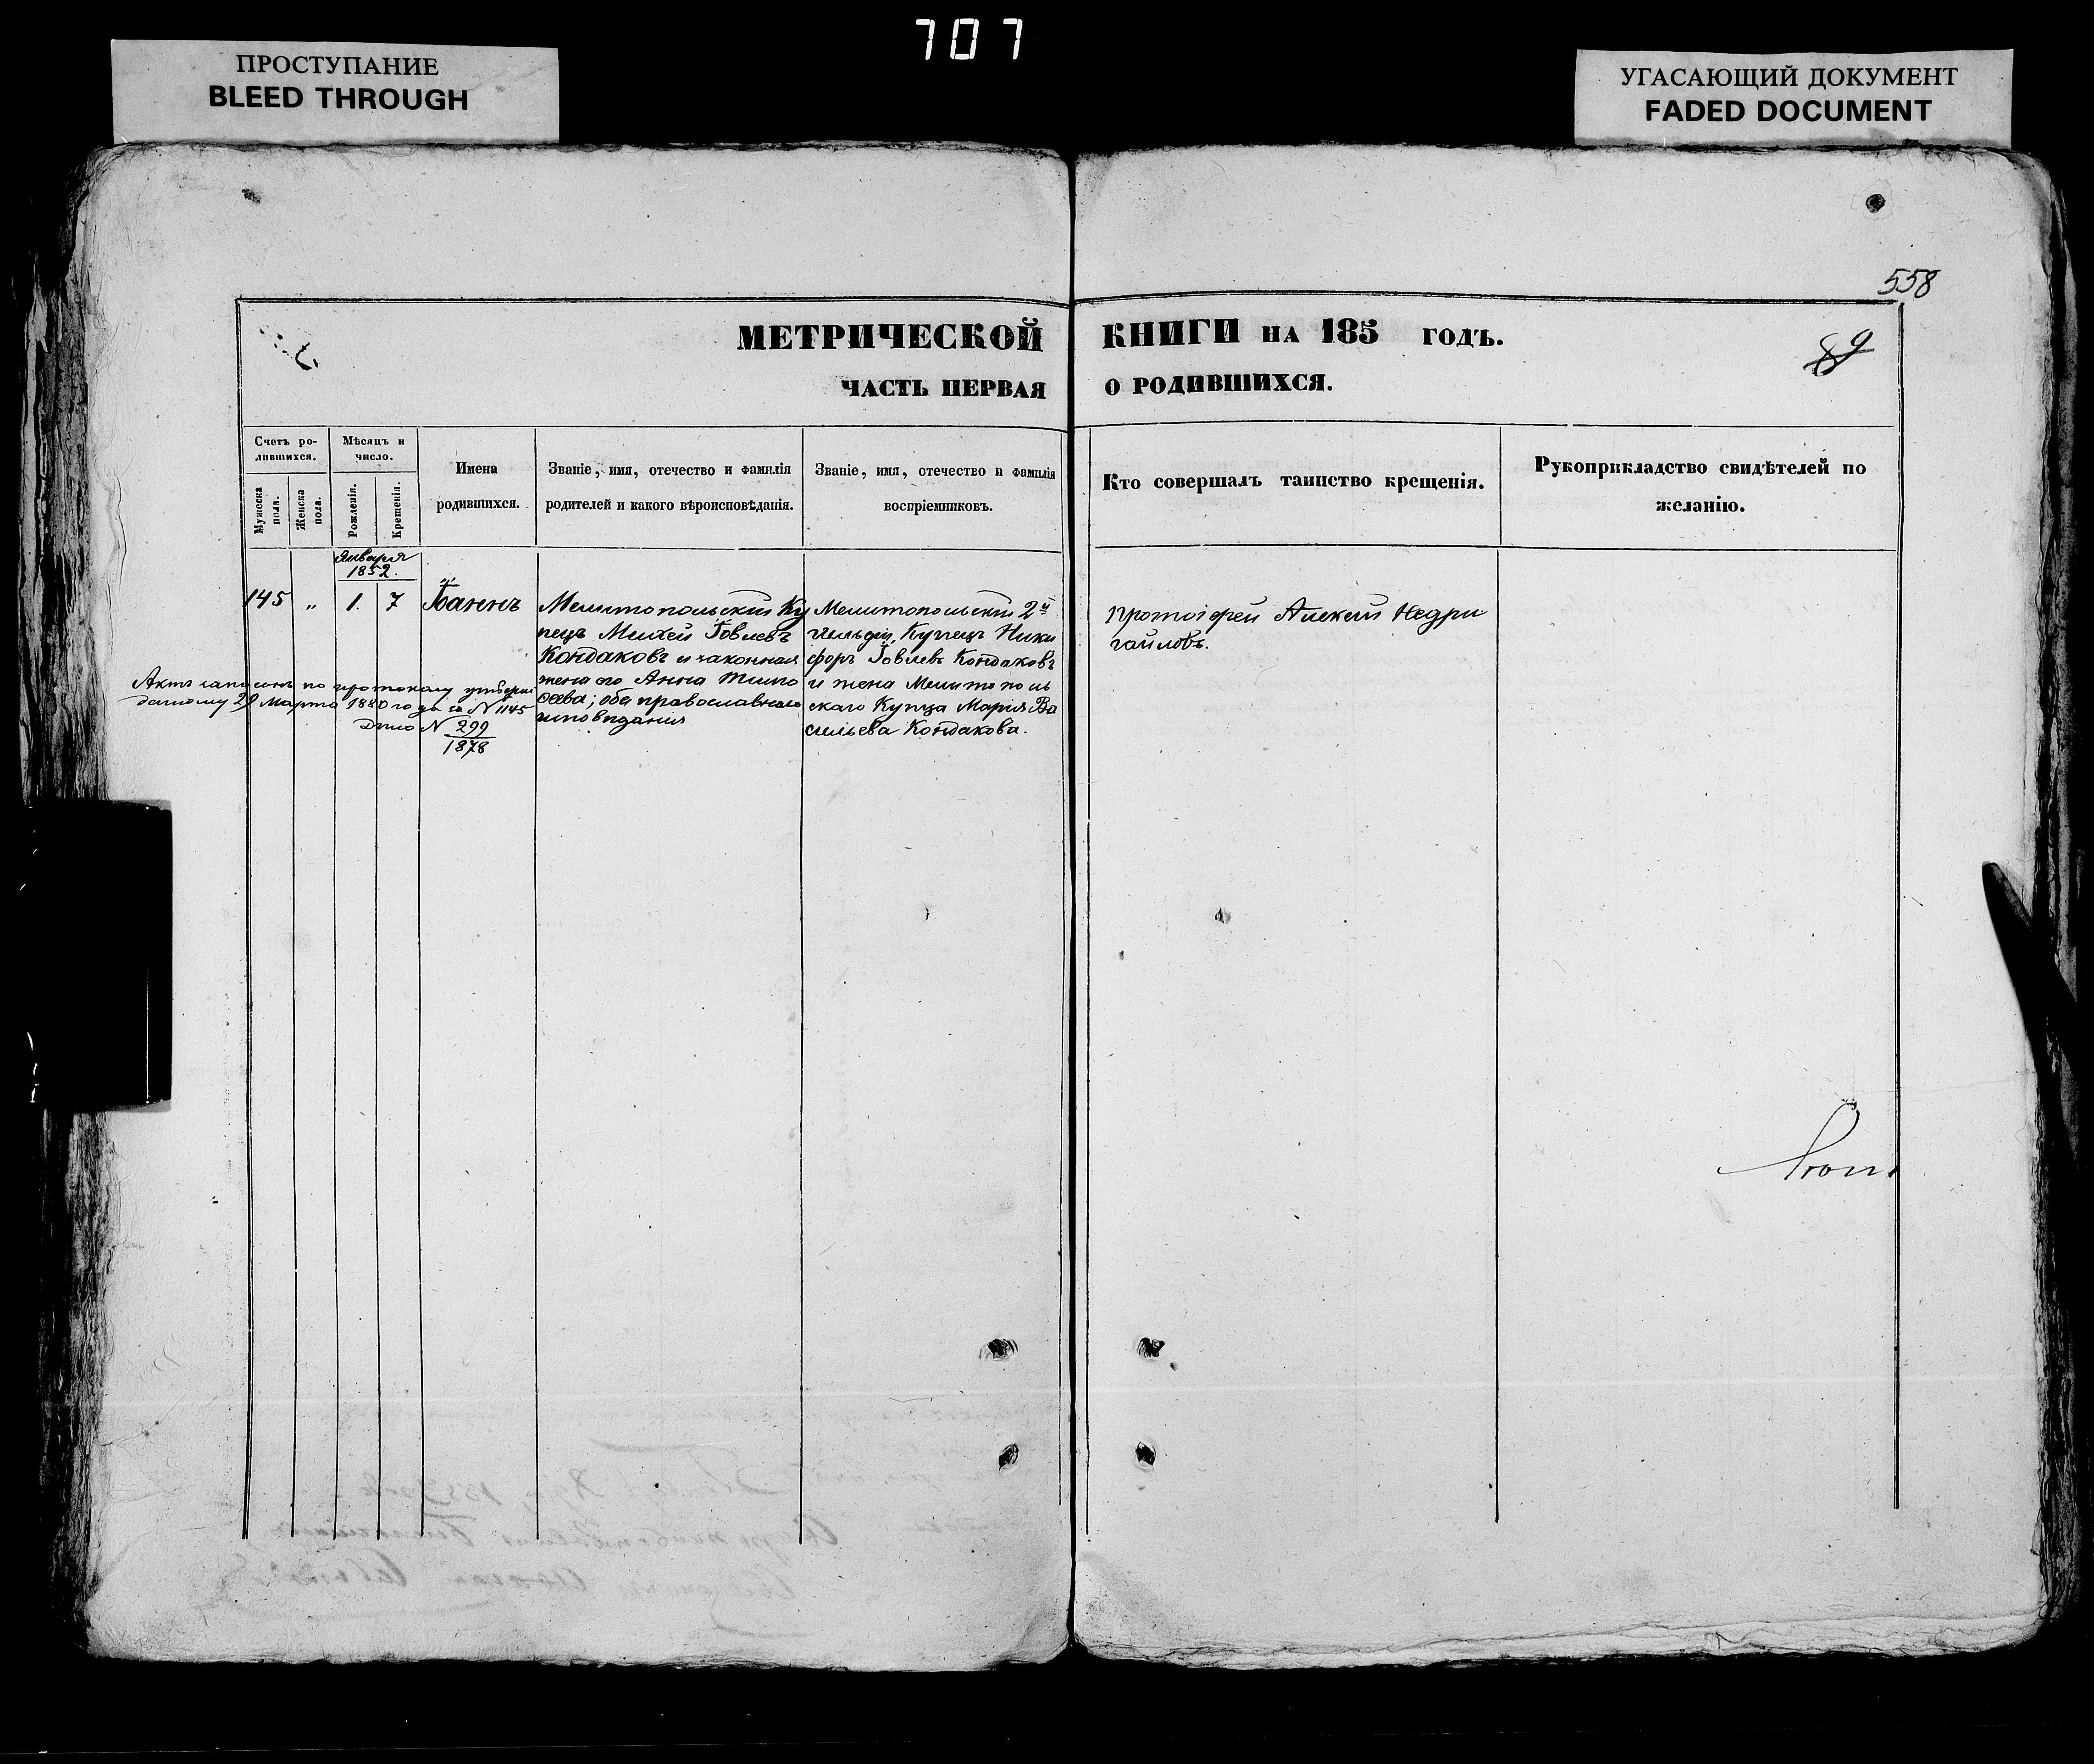 707
ПРОСТУПАНИЕ
BLEED THROUGH
УГАСАЮЩИЙ ДОКУМЕНТ
FADED DOCUMENT
558
МЕТРИЧЕСКОЙ КНИГИ НА 185 ГОДЪ.
89
ЧАСТЬ ПЕРВАЯ О РОДИВШИХСЯ.
Счетъ ро-
дившихся.
Мужеска
пола.
Женска
пола.
Мѣсяцъ и
число.
Рожденія.
Крещенія.
Имена
родившихся.
Званіе, имя, отечество и фамилія
родителей и какого вѣроисповѣданія.
Званіе, имя, отечество и фамилія
воспріемниковъ.
Кто совершалъ таинство крещенія.
Рукоприкладство свидѣтелей по
желанію.
Января
1852.
145 „ 1. 7 Іоаннъ
Мелитопольскій Ку
пецъ Михей Іовлевъ
Кондаковъ и законная
жена его Анна Тимо
ѳеева; оба православнаго
исповѣданія
Мелитопольскій 2й
гильдіи, Купецъ Ники
форъ Іовлевъ Кондаковъ
и жена Мелитополь
скаго Купца Марія Ва
сильева Кондакова.
Протоіерей Алексій Недри
гайловъ.
Актъ записанъ по протоколу утверж
данному 29 Марта 1880 года за N 1145
Дѣло N 299
1878